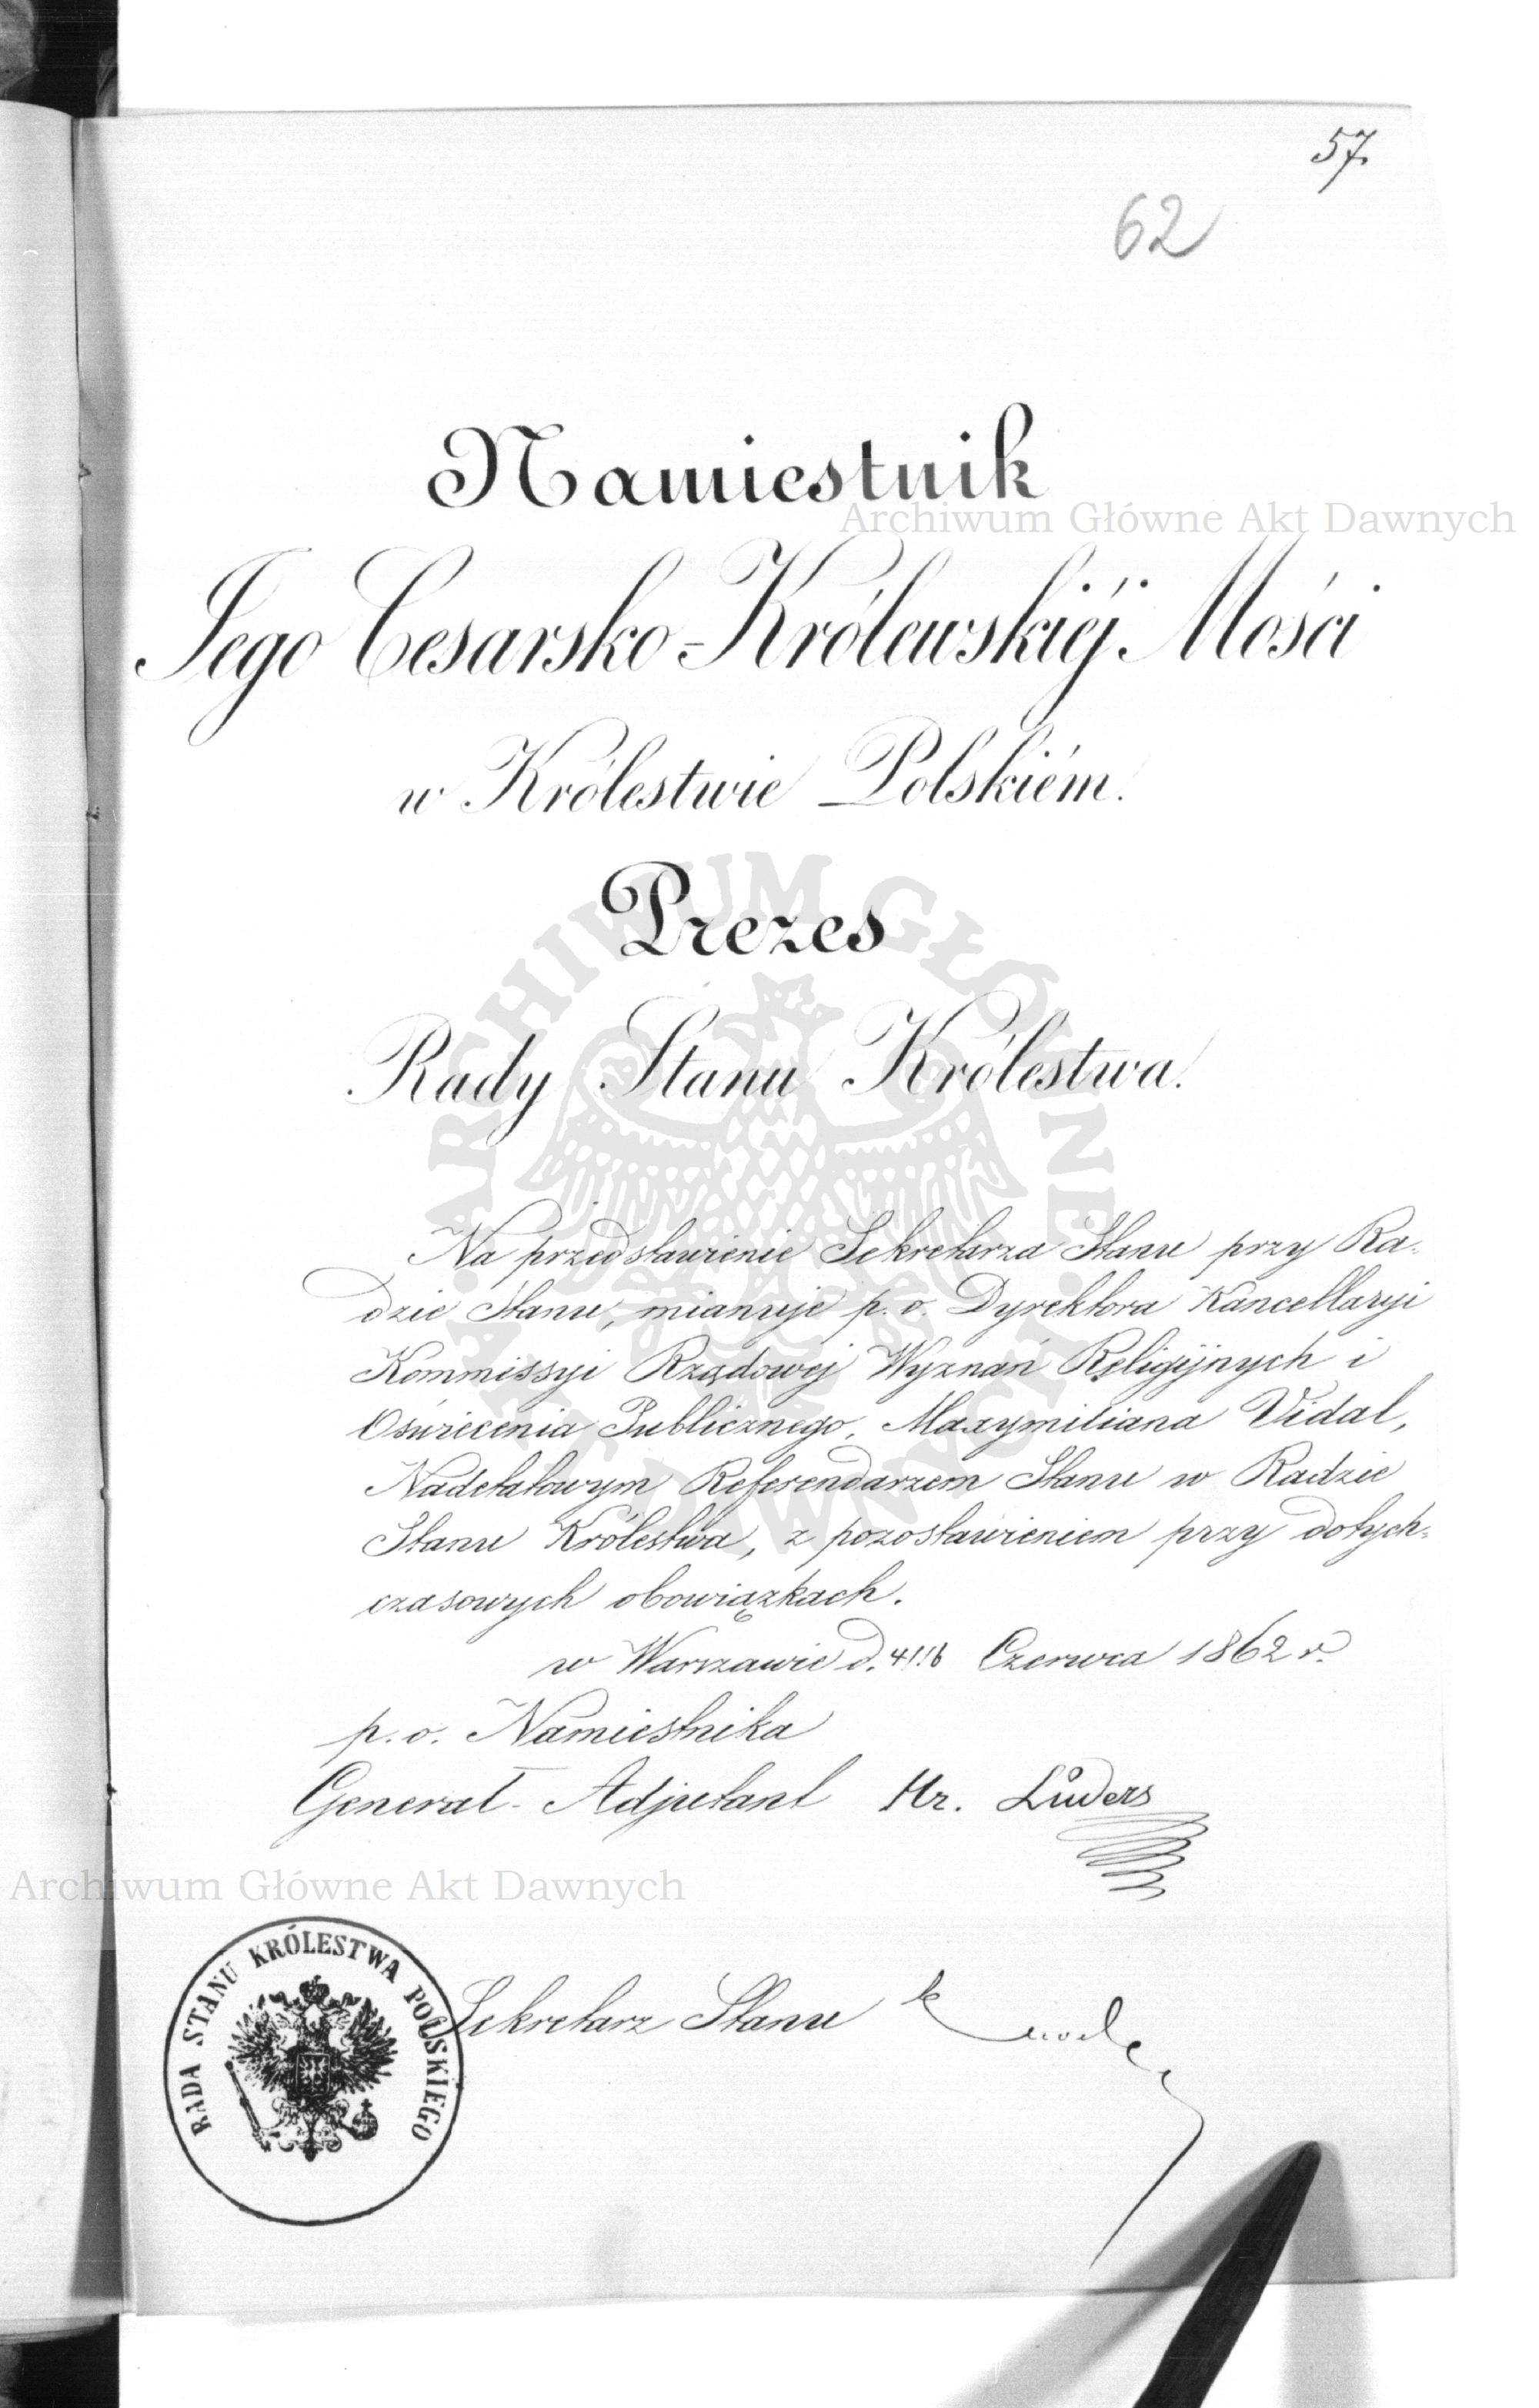 57.
62
Namiestnik
Archiwum Główne Akt Dawnych
Jego Cesarsko-Królewskiéj Mości
w Królestwie Polskiém.
Prezes
Rady Stanu Królestwa.
ARCHIWUM GŁÓWNE AKT DAWNYCH
Na przedstawienie Sekretarza Stanu przy Ra-
dzie Stanu, mianuje p. o. Dyrektora Kancellaryi
Kommissyi Rządowej Wyznań Religijnych i
Oświecenia Publicznego, Maxymiliana Vidal,
Nadetatowym Referendarzem Stanu w Radzie
Stanu Królestwa, z pozostawieniem przy dotych-
czasowych obowiązkach.
w Warszawie d. 4/16 Czerwca 1862 r.
p. o. Namiestnika
Generał-Adjutant Hr. Lüders
Archiwum Główne Akt Dawnych
RADA STANU KRÓLESTWA POLSKIEGO
Sekretarz Stanu